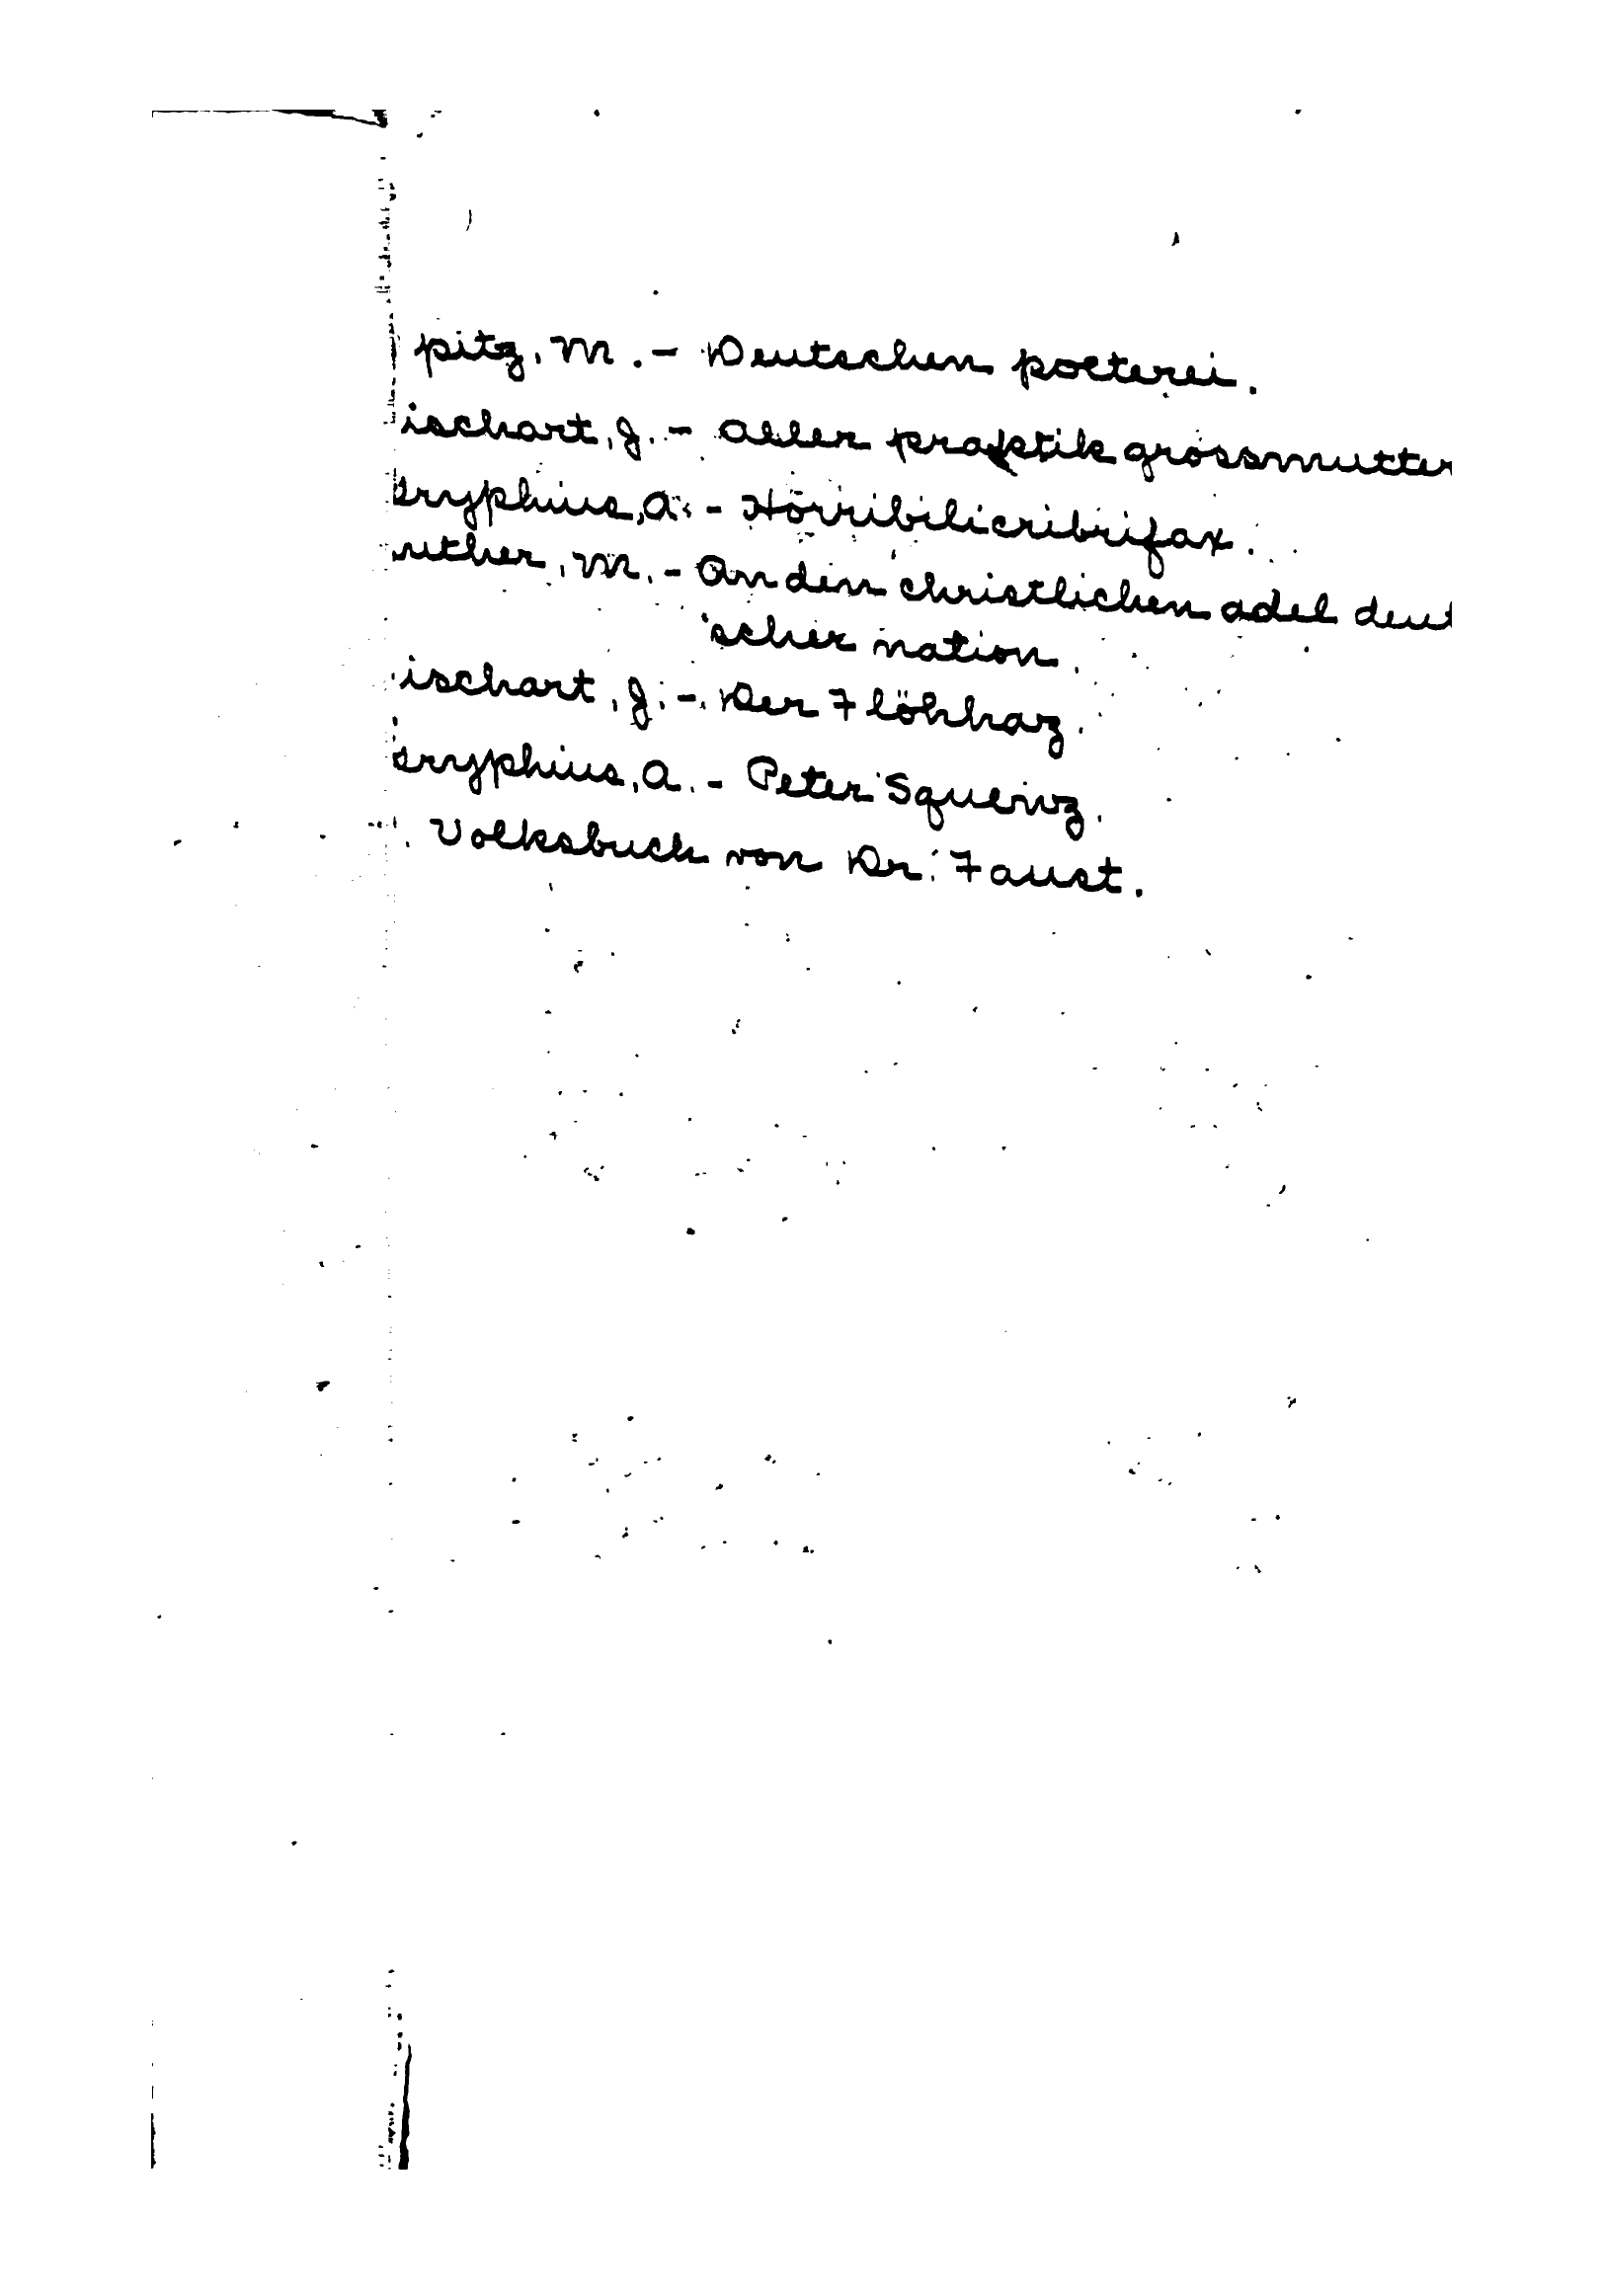 pitz, M. - Deutschen poeterei.
ischart, J. - Aller praktik grossmutter
Gryphius, A. - Horribilicribrifax.
uther, M. - An den christlichen adel deut
scher nation.
ischart, J. - Der Flöhhaz.
Gryphius, A. - Peter Squenz.
Volksbuch von Dr. Faust.